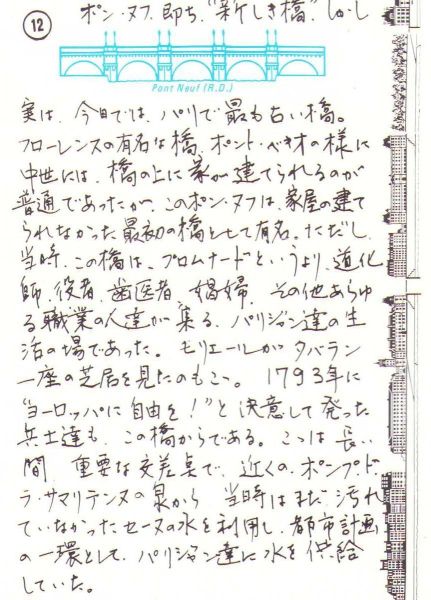 12
ポン・ヌフ、即ち、"新しき橋"。しかし
Pont Neuf (R.D.)
実は、今日では、パリで最も古い橋。
フローレンスの有名な橋、ポント・ベキオの様に
中世には、橋の上に家が建てられるのが
普通であったが、このポン・ヌフは、家屋の建て
られなかった最初の橋として有名。ただし、
当時、この橋は、プロムナードというより、道化
師、役者、歯医者、娼婦、その他あらゆ
る職業の人達が集る、パリジャン達の生
活の場であった。モリエールがタバラン
一座の芝居を見たのもここ。1793年に
"ヨーロッパに自由を!"と決意して発った
兵士達も、この橋からである。ここは長い
間、重要な交差点で、近くの、ポンプ・ド・
ラ・サマリテンヌの泉から 当時はまだ汚れ
ていなかったセーヌの水を利用し、都市計画
の一環として、パリジャン達に水を供給
していた。